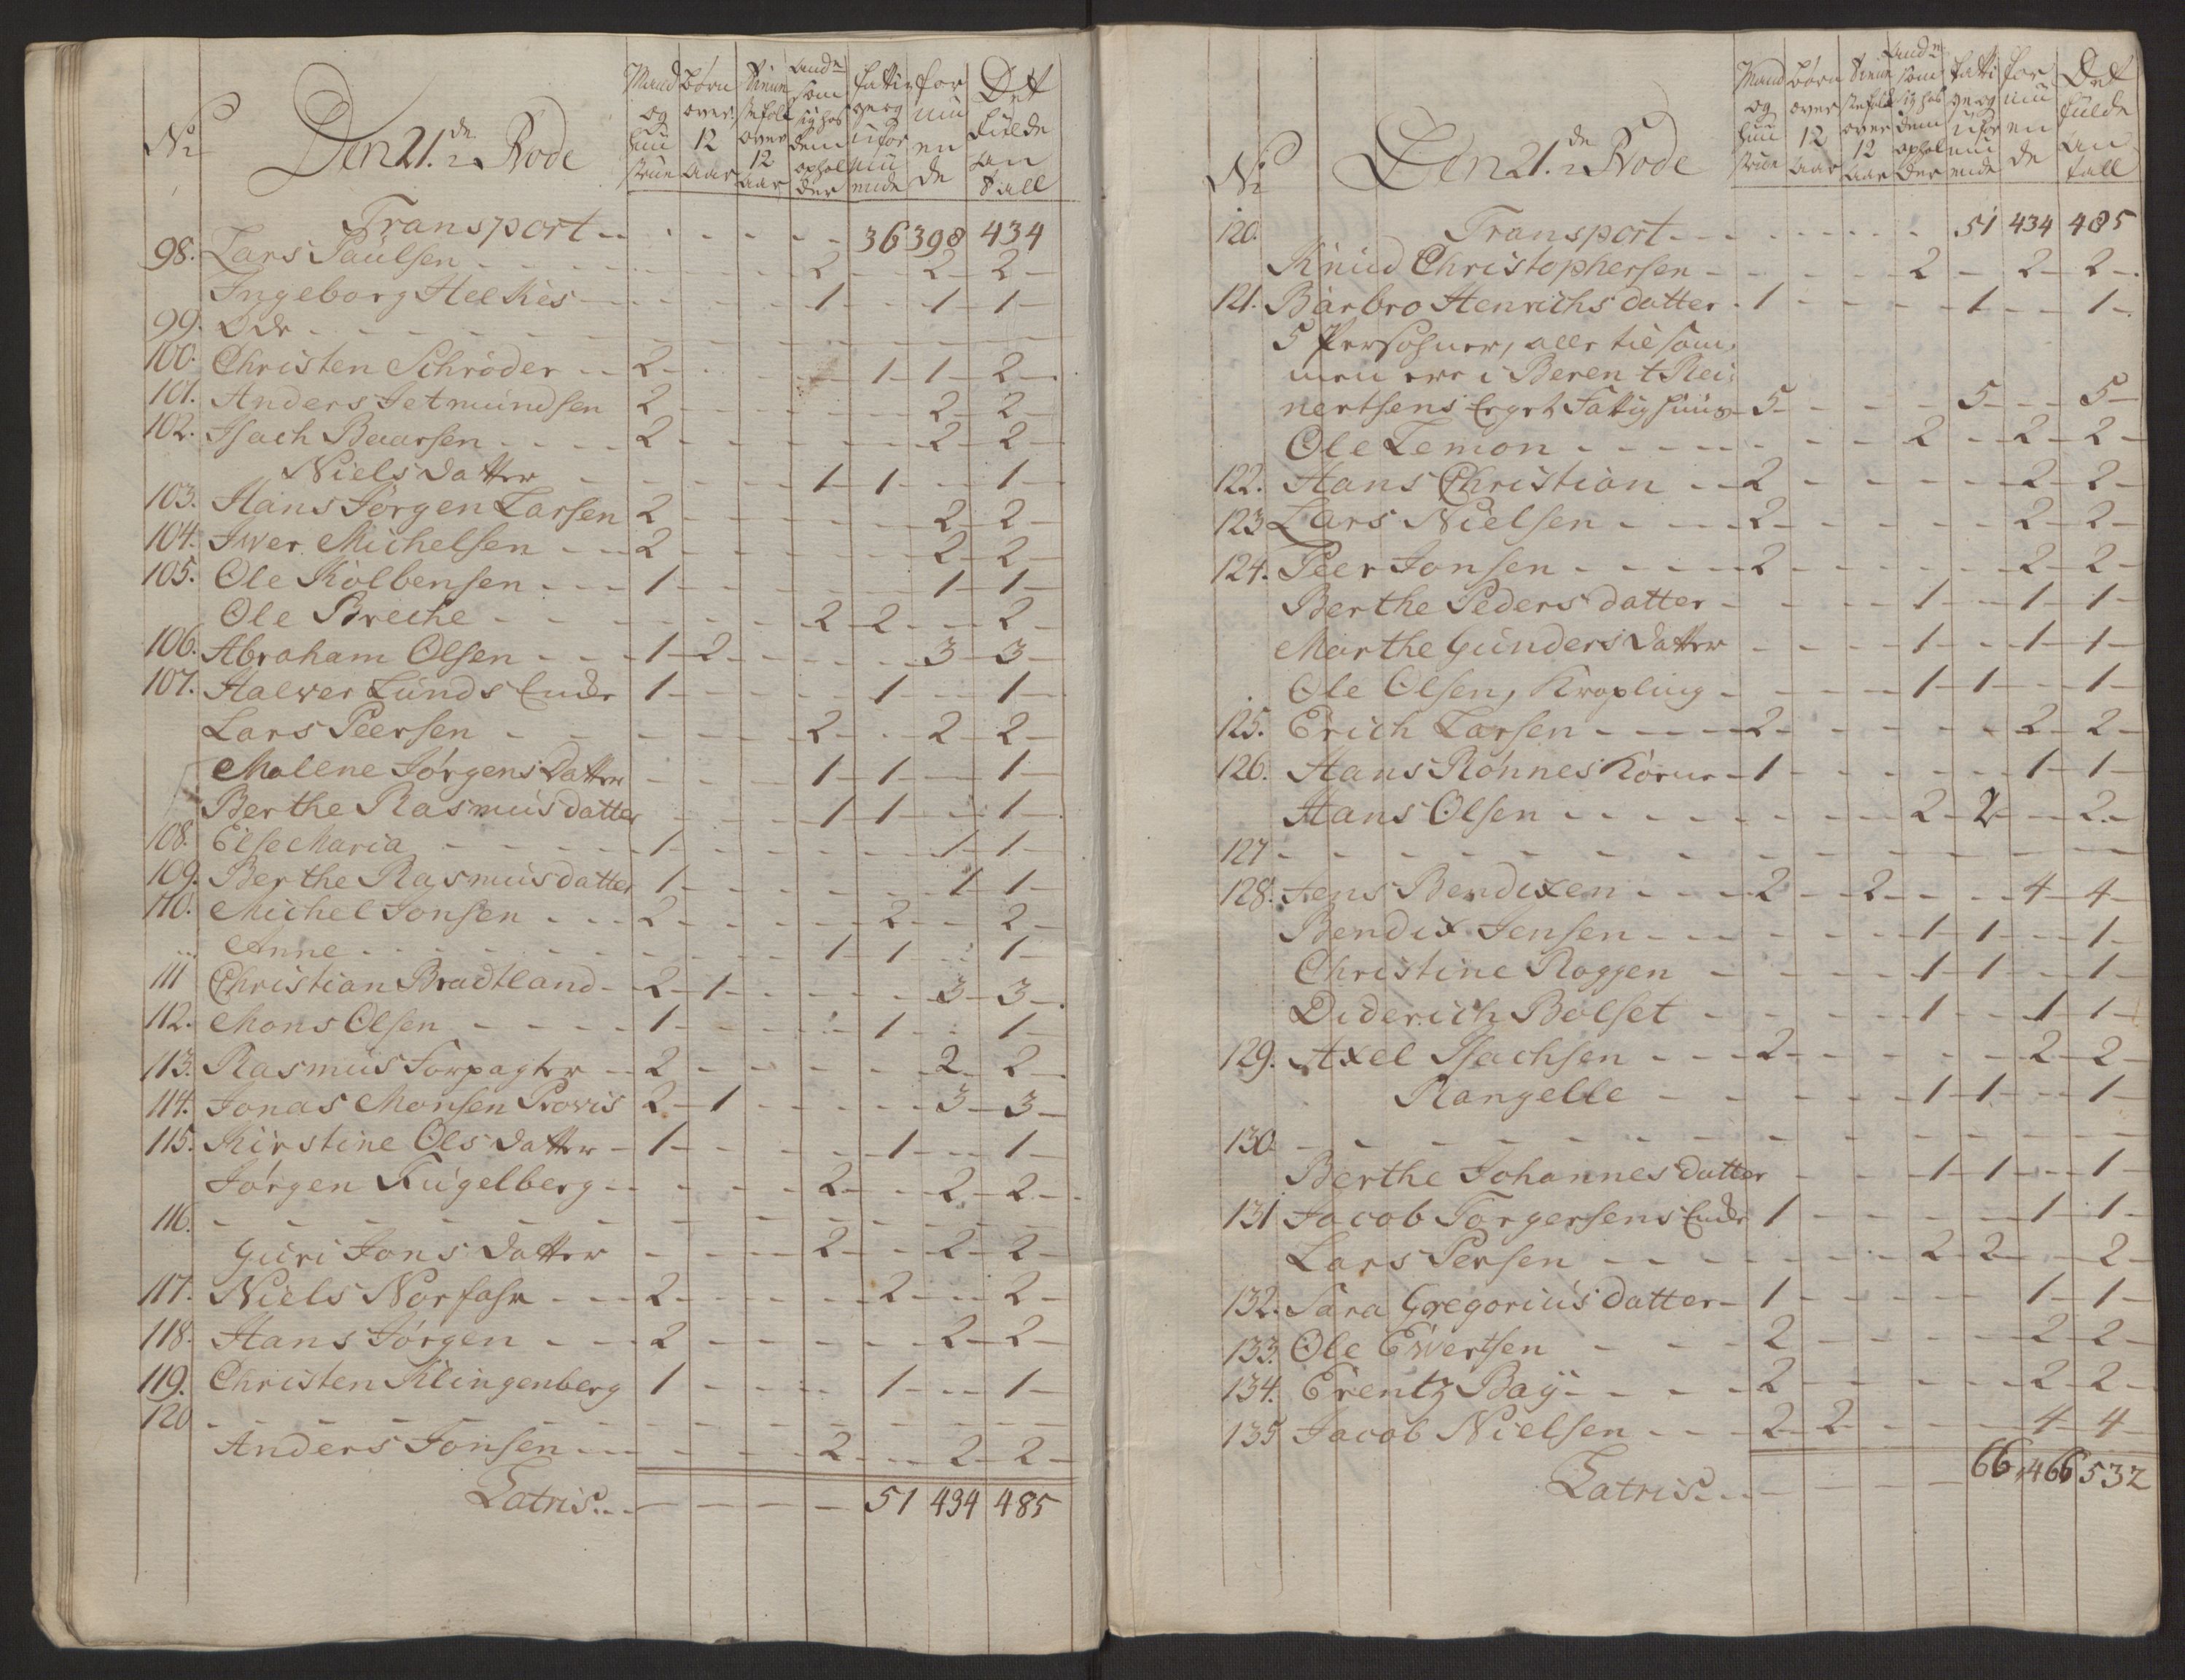 No Den 21.de Rode
Mand og hustrue
Børn over 12 Aar
Tieneste folk over 12 Aar
Andre som sig hos dem opholder
fattige og uformuende
formuende
Det fulde antall
Transport - - - - - - 36 398 434
98. Lars Paulsen - - - - 2 - 2 - 2 -
Ingeborg Helkes - - - - 1 - - 1 - 1 -
99. Øde - - - - - -
100. Christen Schrøder - - 2 - - - - 1 - 1 - 2 -
101. Anders Jetmundsen 2 - - - - - 2 - 2 -
102. Isach Baarsen - - - 2 - - - - - 2 - 2 -
Niels datter - - - - 1 - 1 - - 1 -
103. Hans Jørgen Larsen 2 - - - - - 2 - 2 -
104. Iwer Michelsen - - 2 - - - - - 2 - 2 -
105. Ole Kolbensen - - - 1 - - - - - 1 - 1 -
Ole Breche - - - - - 2 - 2 - - 2 -
106. Abraham Olsen - - - 1 - 2 - - - - 3 - 3 -
107. Halver Lunds Encke 1 - - - - 1 - - 1 -
Lars Peersen - - - - - 2 - - 2 - 2 -
Malene Jørgens Datter - - - 1 - 1 - - 1 -
Berthe Rasmus datter - - - 1 - 1 - - 1 -
108. Else Maria - - - - 1 - - - - - 1 - 1 -
109. Berthe Rasmus datter 1 - - - - - 1 1 -
110. Michel Jonsen - - - 2 - - - - 2 - - 2 -
Anne - - - - - - - 1 - 1 - - 1 -
111 Christian Bradtland - - 2 - 1 - - - - 3 - 3 -
112. Mons Olsen - - - - 1 - - - - 1 - - 1 -
113. Rasmus Forpagter - - 2 - - - - - 2 - 2 -
114. Jonas Monsen Provis 2 - 1 - - - - 3 - 3 -
115. Kirstine Ols datter - 1 - - - - 1 - - 1 -
Jørgen Kugelberg - - - - - 2 - - 2 - 2 -
116. - - - - - - - - - - - - -
Guri Jons datter - - - 2 - - 2 - 2 -
117. Niels Norfahr - - - 2 - - - - 2 - - 2 -
118. Hans Jørgen - - - 2 - - - - - 2 - 2 -
119. Christen Klingenberg 1 - - - - 1 - - 1 -
120 - - - - - - - - - - - -
Anders Jonsen - - - - - - 2 - - 2 - 2 -
Latris. - - - - - - 51 434 485
No Den 21.de Rode
Mand og hustrue
Børn over 12 Aar
Tieneste folk over 12 Aar
Andre som sig hos dem opholder
fattige og uformuende
formuende
Det fulde antall
120. Transport - - - - - - - 51 434 485
Knud Christophersen - - - - 2 - 2 - 2 -
121. Barbro Henrichs datter - 1 - - - - 1 - - 1 -
5 Persohner, alle tilsam,
men ere i Berent Rei,
nertsens Erget Fattighuus - 5 - - - - 5 - - 5 -
Ole Lemon - - - - - - - 2 - 2 - 2 -
122. Hans Christian - - 2 - - - - - 2 - 2 -
123 Lars Nielsen - - - - 2 - - - - - 2 - 2 -
124. Peer Jonsen - - - - 2 - - - - - 2 - 2 -
Berthe Peders datter - - - - 1 - - 1 - 1 -
Marthe Gunders datter - - - - 1 - - 1 - 1 -
Ole Olsen, Krøpling - - - - 1 - 1 - - 1 -
125. Erich Larsen - - - - 2 - - - - - 2 - 2 -
126. Hans Rønnes Kørne - 1 - - - - - 1 - 1 -
Hans Olsen - - - - - - - 2 - 2 - - 2 -
127 - - - - - - - - - - - - -
128. Jens Bendixen - - - 2 - - 2 - - - 4 - 4 -
Bendix Jensen - - - - - - 1 - 1 - - 1 -
Christine Roggen - - - - 1 - 1 - - 1 -
Diderich Bolset - - - - 1 - - 1 - 1 -
129. Axel Isachsen - - - 2 - - - - - 2 - 2 -
Rangelle - - - - - 1 - 1 - - 1 -
130 - - - - - - - - - - - - -
Berthe Johannes datter - - - 1 - 1 - - 1 -
131 Jacob Torgersens Encke 1 - - - - - 1 - 1 -
Lars Persen - - - - - - 2 - 2 - - 2 -
132. Sara Gregorius datter - 1 - - - - - 1 - 1 -
133. Ole Ewertsen - - - 2 - - - - - 2 - 2 -
134. Erentz Baÿ - - - - 2 - - - - - 2 - 2 -
135 Jacob Nielsen - - - 2 - 2 - - - - 4 - 4 -
Latris. - - - - - - 66 466 532